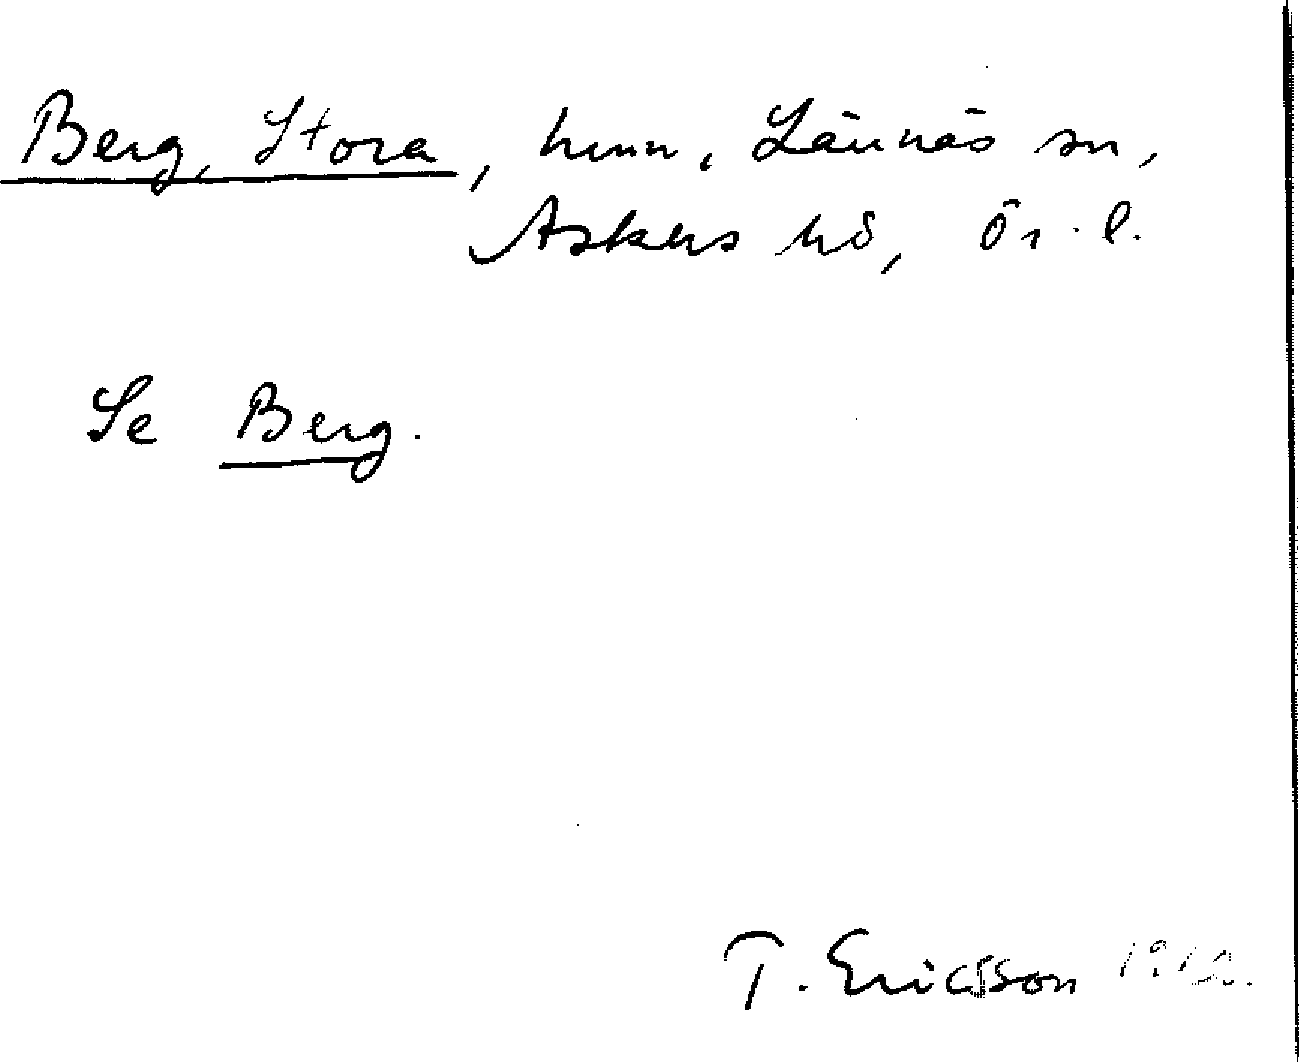 Berg, Stora, hmn, Lännäs sn,
Askers hd, Ör. l.
Se Berg.
T. Ericsson